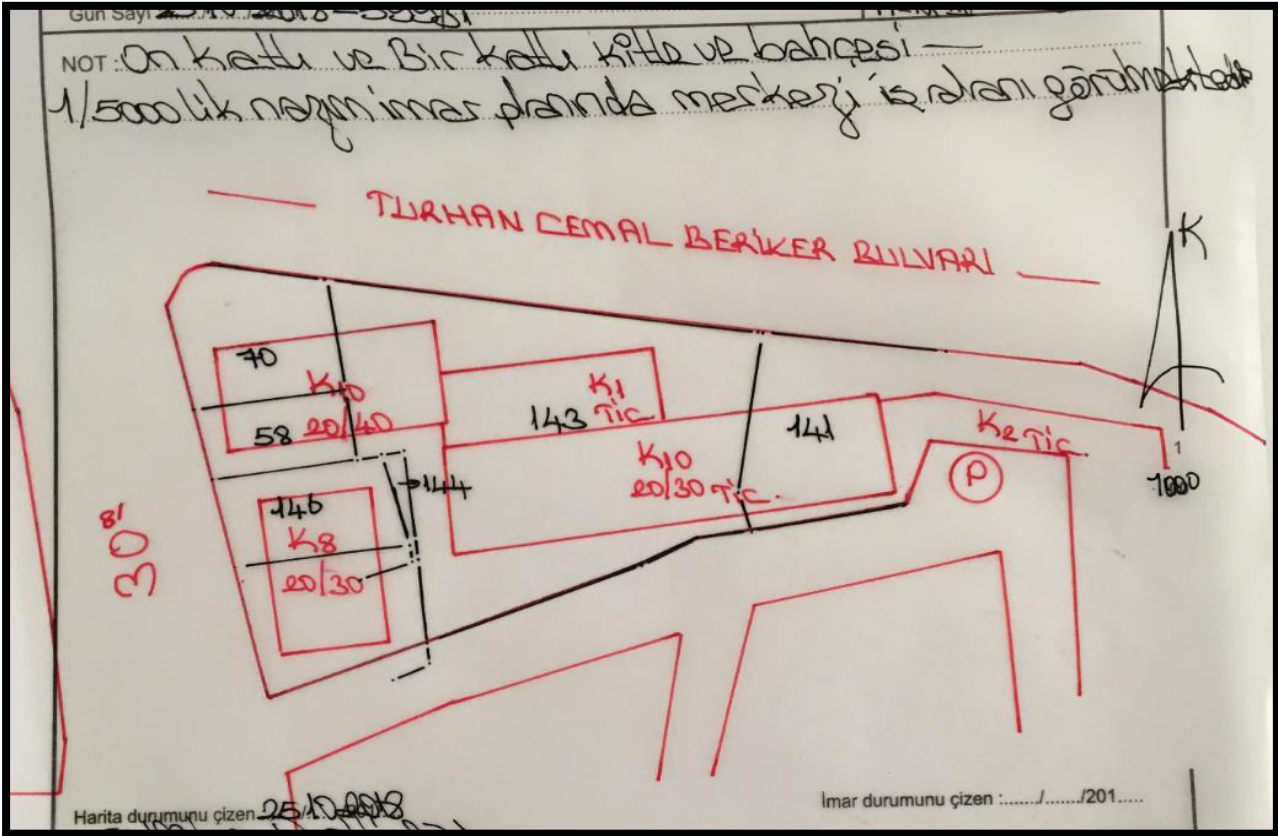 Gün Sayı
NOT : On Katlı ve Bir katlı kitle ve bahçesi
1/5000 lik nazım imar planında merkezi iş alanı görülmektedir
TURHAN CEMAL BERİKER BULVARI
K
70
K10
K1
143 TİC.
58 20/40
141
K2 TİC.
K10
20/30 TİC.
P
1
1000
144
146
K8
20/30
81
30
Harita durumunu çizen 25/10/2018
İmar durumunu çizen :......./......./201.....